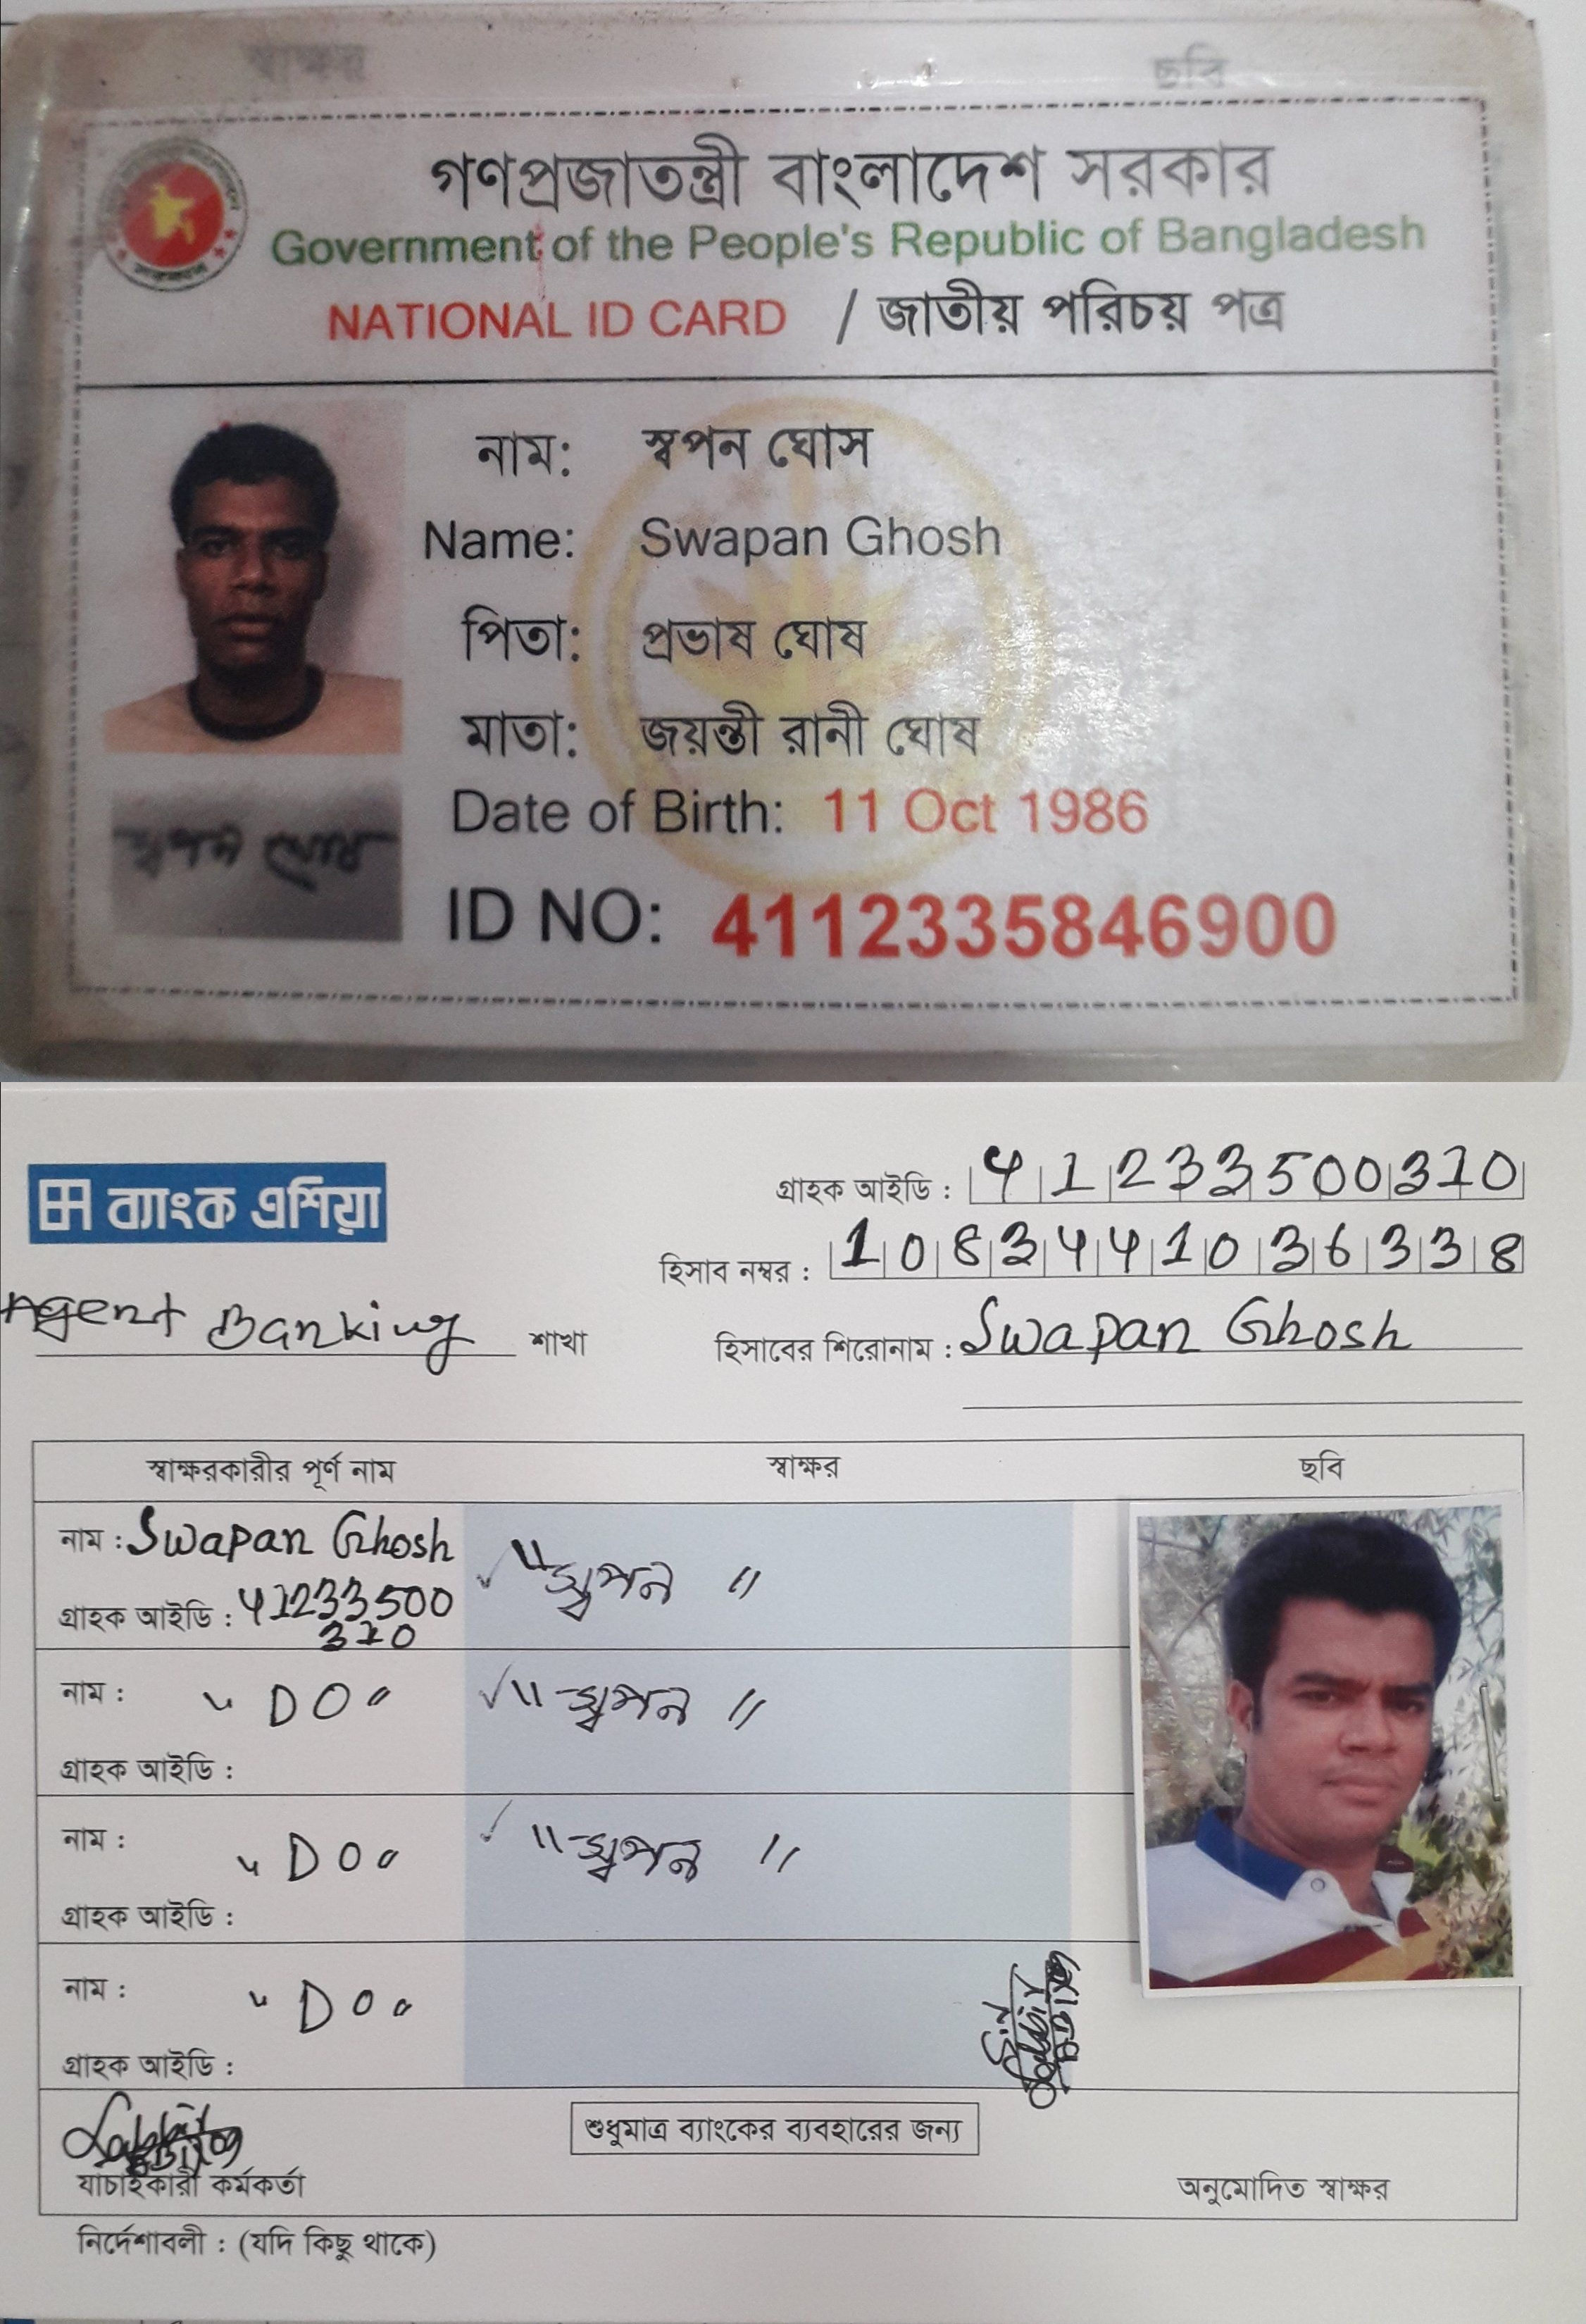 স্বাক্ষর ছবি
গণপ্রজাতন্ত্রী বাংলাদেশ সরকার
Government of the People's Republic of Bangladesh
NATIONAL ID CARD / জাতীয় পরিচয় পত্র
নাম: স্বপন ঘোস
Name: Swapan Ghosh
পিতা: প্রভাষ ঘোষ
মাতা: জয়ন্তী রানী ঘোষ
Date of Birth: 11 Oct 1986
স্বপন ঘোষ
ID NO: 4112335846900
ব্যাংক এশিয়া
গ্রাহক আইডি : 41233500310
হিসাব নম্বর : 1083441036338
Agent Banking শাখা
হিসাবের শিরোনাম : Swapan Ghosh
স্বাক্ষরকারীর পূর্ণ নাম স্বাক্ষর ছবি
নাম : Swapan Ghosh "স্বপন"
গ্রাহক আইডি : 41233500
310
নাম : "DO" "স্বপন"
গ্রাহক আইডি :
নাম : "DO" "স্বপন"
গ্রাহক আইডি :
নাম : "DO"
গ্রাহক আইডি :
শুধুমাত্র ব্যাংকের ব্যবহারের জন্য
যাচাইকারী কর্মকর্তা অনুমোদিত স্বাক্ষর
নির্দেশাবলী : (যদি কিছু থাকে)